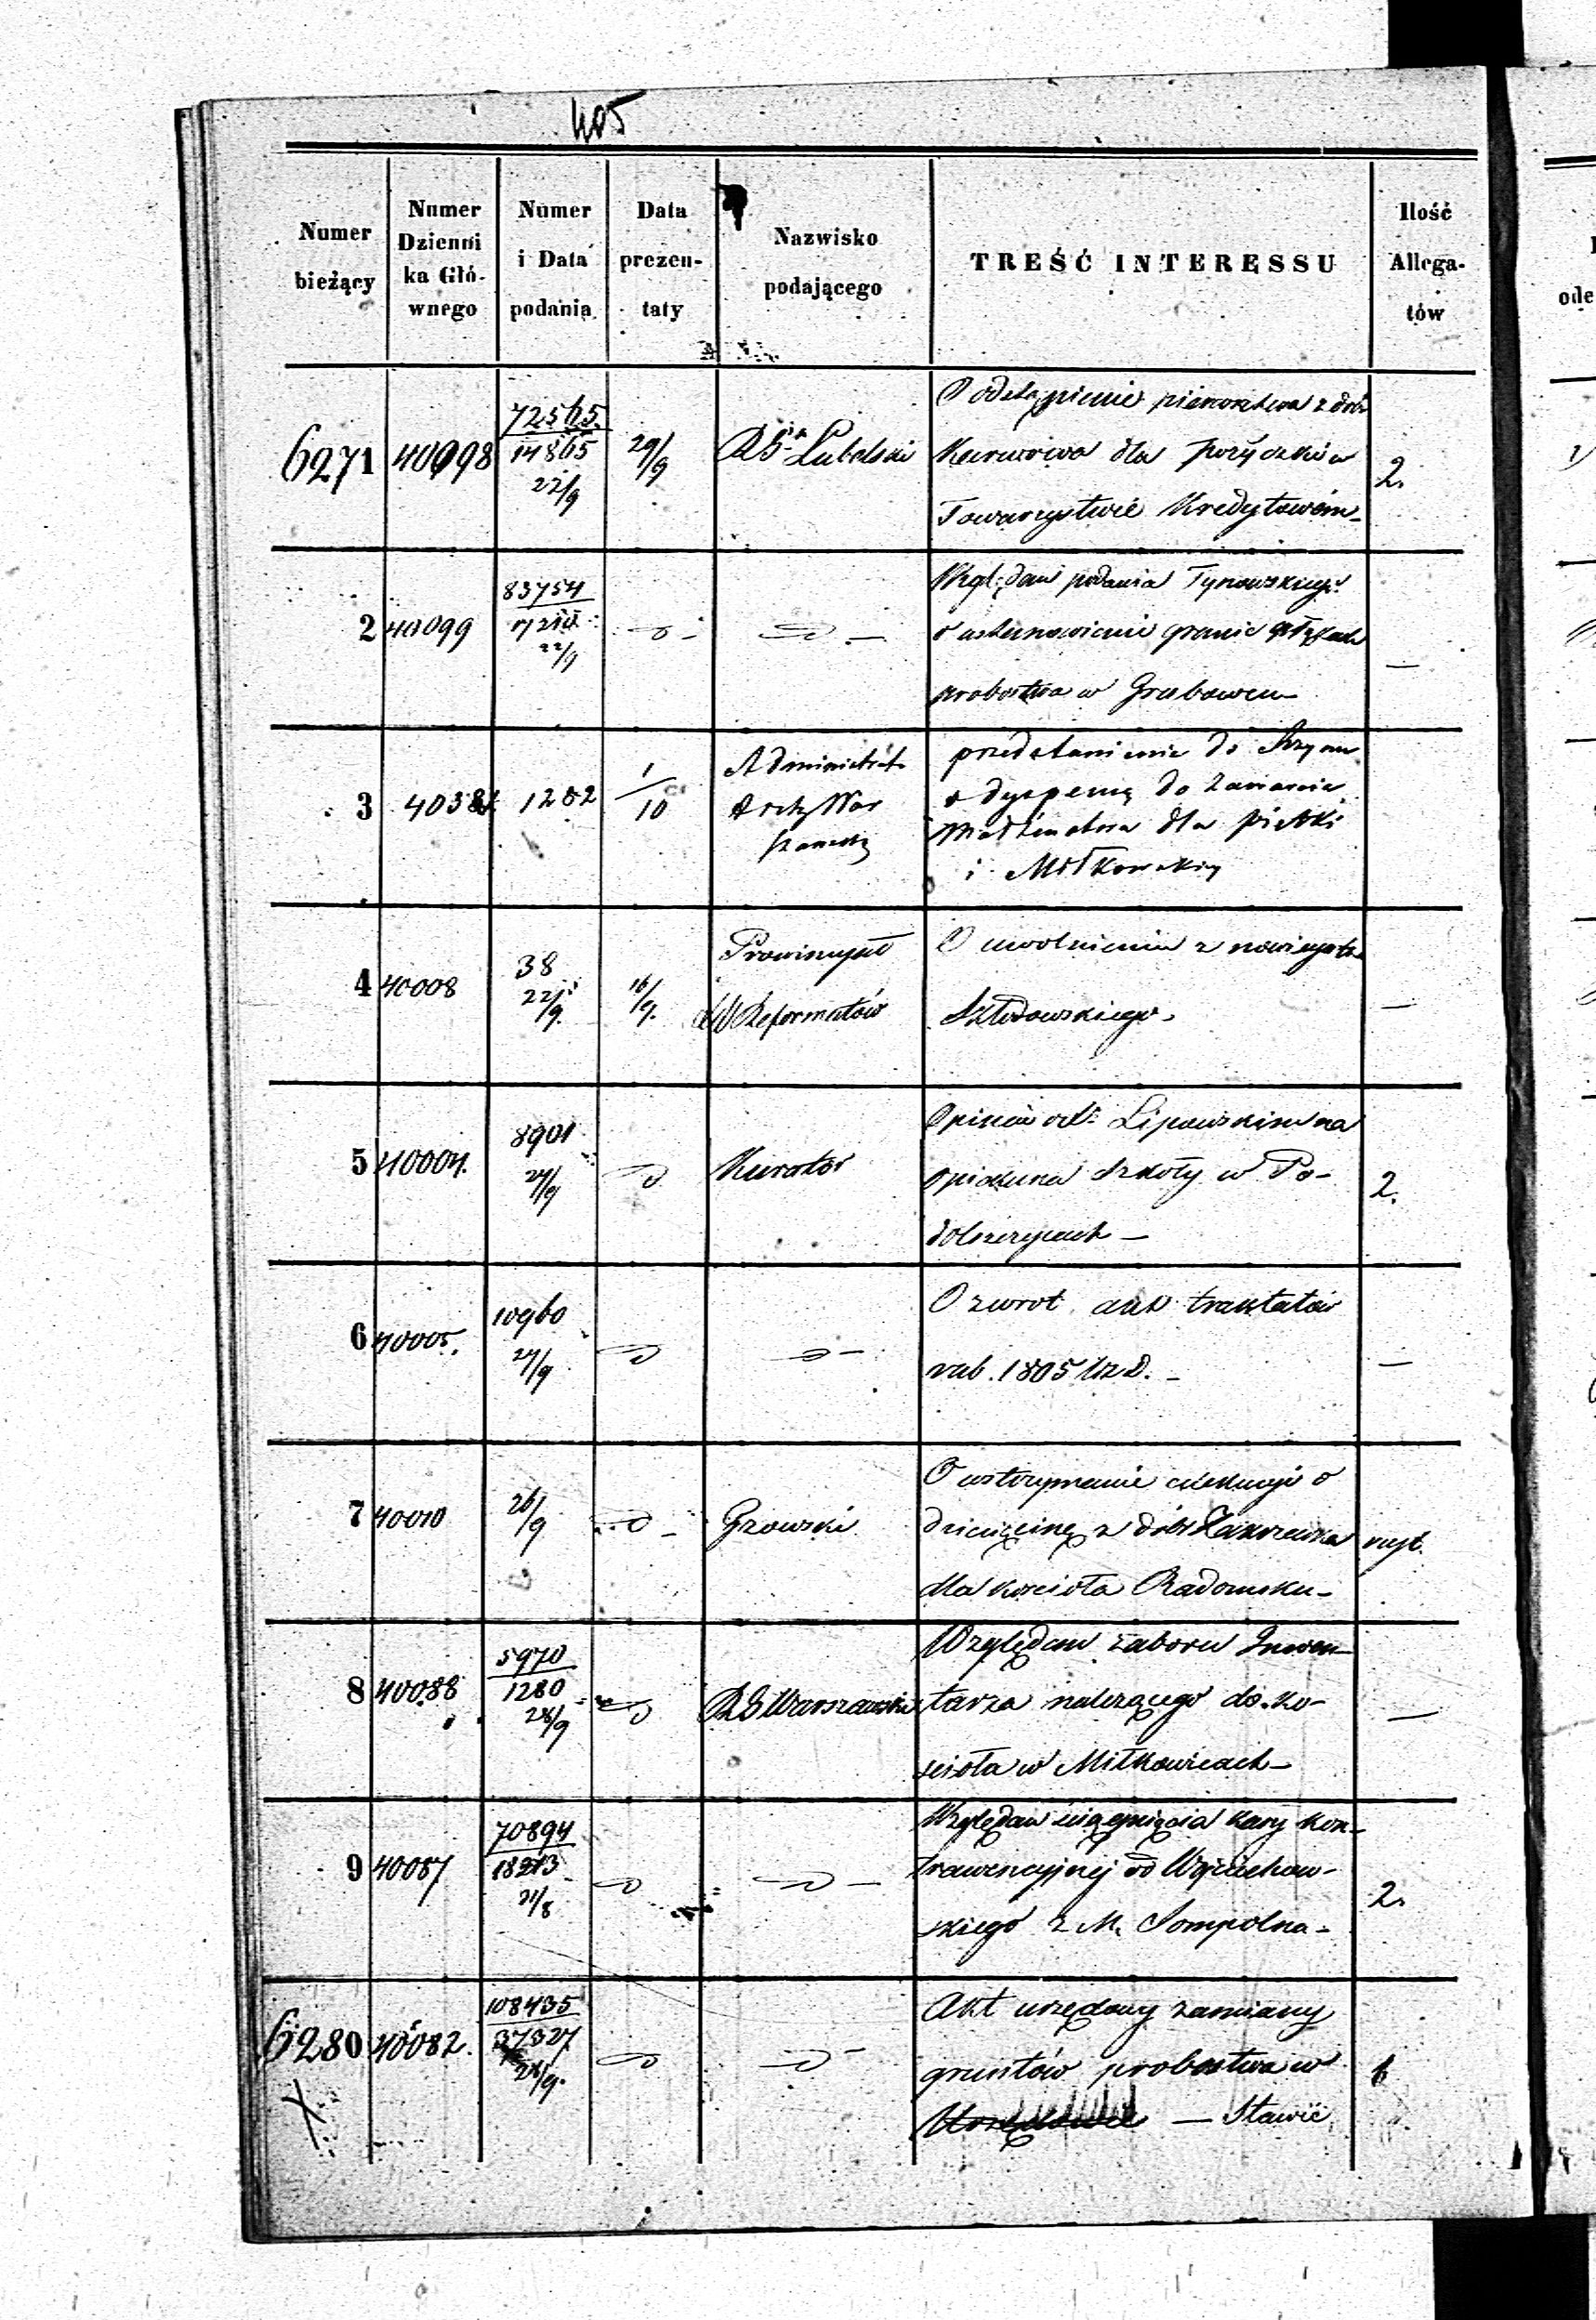 405
Numer bieżący
Numer Dzienni ka Głó- wnego
Numer i Data podania
Data prezen- taty
Nazwisko podającego
TREŚĆ INTERESSU
Ilość Allega- tów
ode
6271 40098 72565 14865 22/9 29/9 Lubelski
O odstąpienie pierwszeństwa z dóbr
dla pożyczki w
Towarzystwie Kredytowém 2.
2 40099 83754 22/9
Względem podania Tynowskiego
o ustanowienie granic
probostwa w Grabowcu —
3 1282 1/10 Administrat.
Arch. War
szawski
przedstawienie do Rzymu
o dyspensę do zawarcia
Małżeństwa dla
i Miłkowskiey
4 40008 38 22/9 16/9. Prowincyał
Reformatów
O uwolnienie z nowicyatu
Szkłodowskiego. —
5 40004. 8901 24/9 Kurator
Opinia Lipowskim na
opiekuna Szkoły w Po-
dolszycach — 2.
6 40005. 10960 24/9
O zwrot traktatów
rub. 1805 —
7 40010 26/9 Gzowski
O wstrzymanie exekucyi o
dziesięcinę z dóbr Zakrzewka
dla kościoła Radomsku —
8 40088 5970 1280 28/9 RG Warszawski
Względem zaboru Inwen-
tarza należącego do ko-
ścioła w Miłkowicach —
9 40087 70894 18213 21/8
Względem ściągnięcia kary kon-
trawencyjnej od Wojciechow-
skiego z M. Sompolna — 2.
6280 40082. 108435 37327 28/9.
Akt urzędowy zamiany
gruntów probostwa w
— Stawie 1